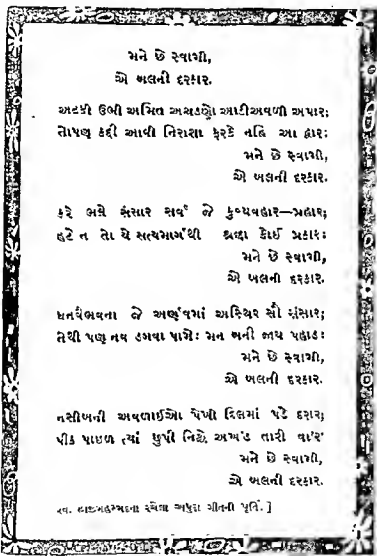 મને છે સ્વામી,
એ બલની દરકાર.
અટકી ઉભી અમિત અચડણો આડીઅવળી અપાર;
તોપણ કદી આવી નિરાશા ફરકે નહિ આ દ્વાર:
મને છે સ્વામી,
એ બલની દરકાર.
કરે ભલે સંસાર સર્વ જે કુવ્યવહાર—પ્રહાર;
હટે ન તો યે સત્યમાર્ગથી શ્રદ્ધા કોઈ પ્રકાર:
મને છે સ્વામી,
એ બલની દરકાર.
ધનવૈભવના જે અર્ણવમાં અસ્થિર સૌ સંસાર;
તેથી પણ નવ ડગવા પામે: મન બની જાય પહાડ:
મને છે સ્વામી,
એ બલની દરકાર.
નસીબની અવળાઈઓ પેખી દિલમાં પડે દરાર;
પીઠ પાછળ ત્યાં છુપી નિહાળે અખંડ તારી વા'ર
મને છે સ્વામી,
એ બલની દરકાર.
સ્વ. હાજીમહમ્મદના રચેલા અધુરા ગીતની પૂર્તિ. ]